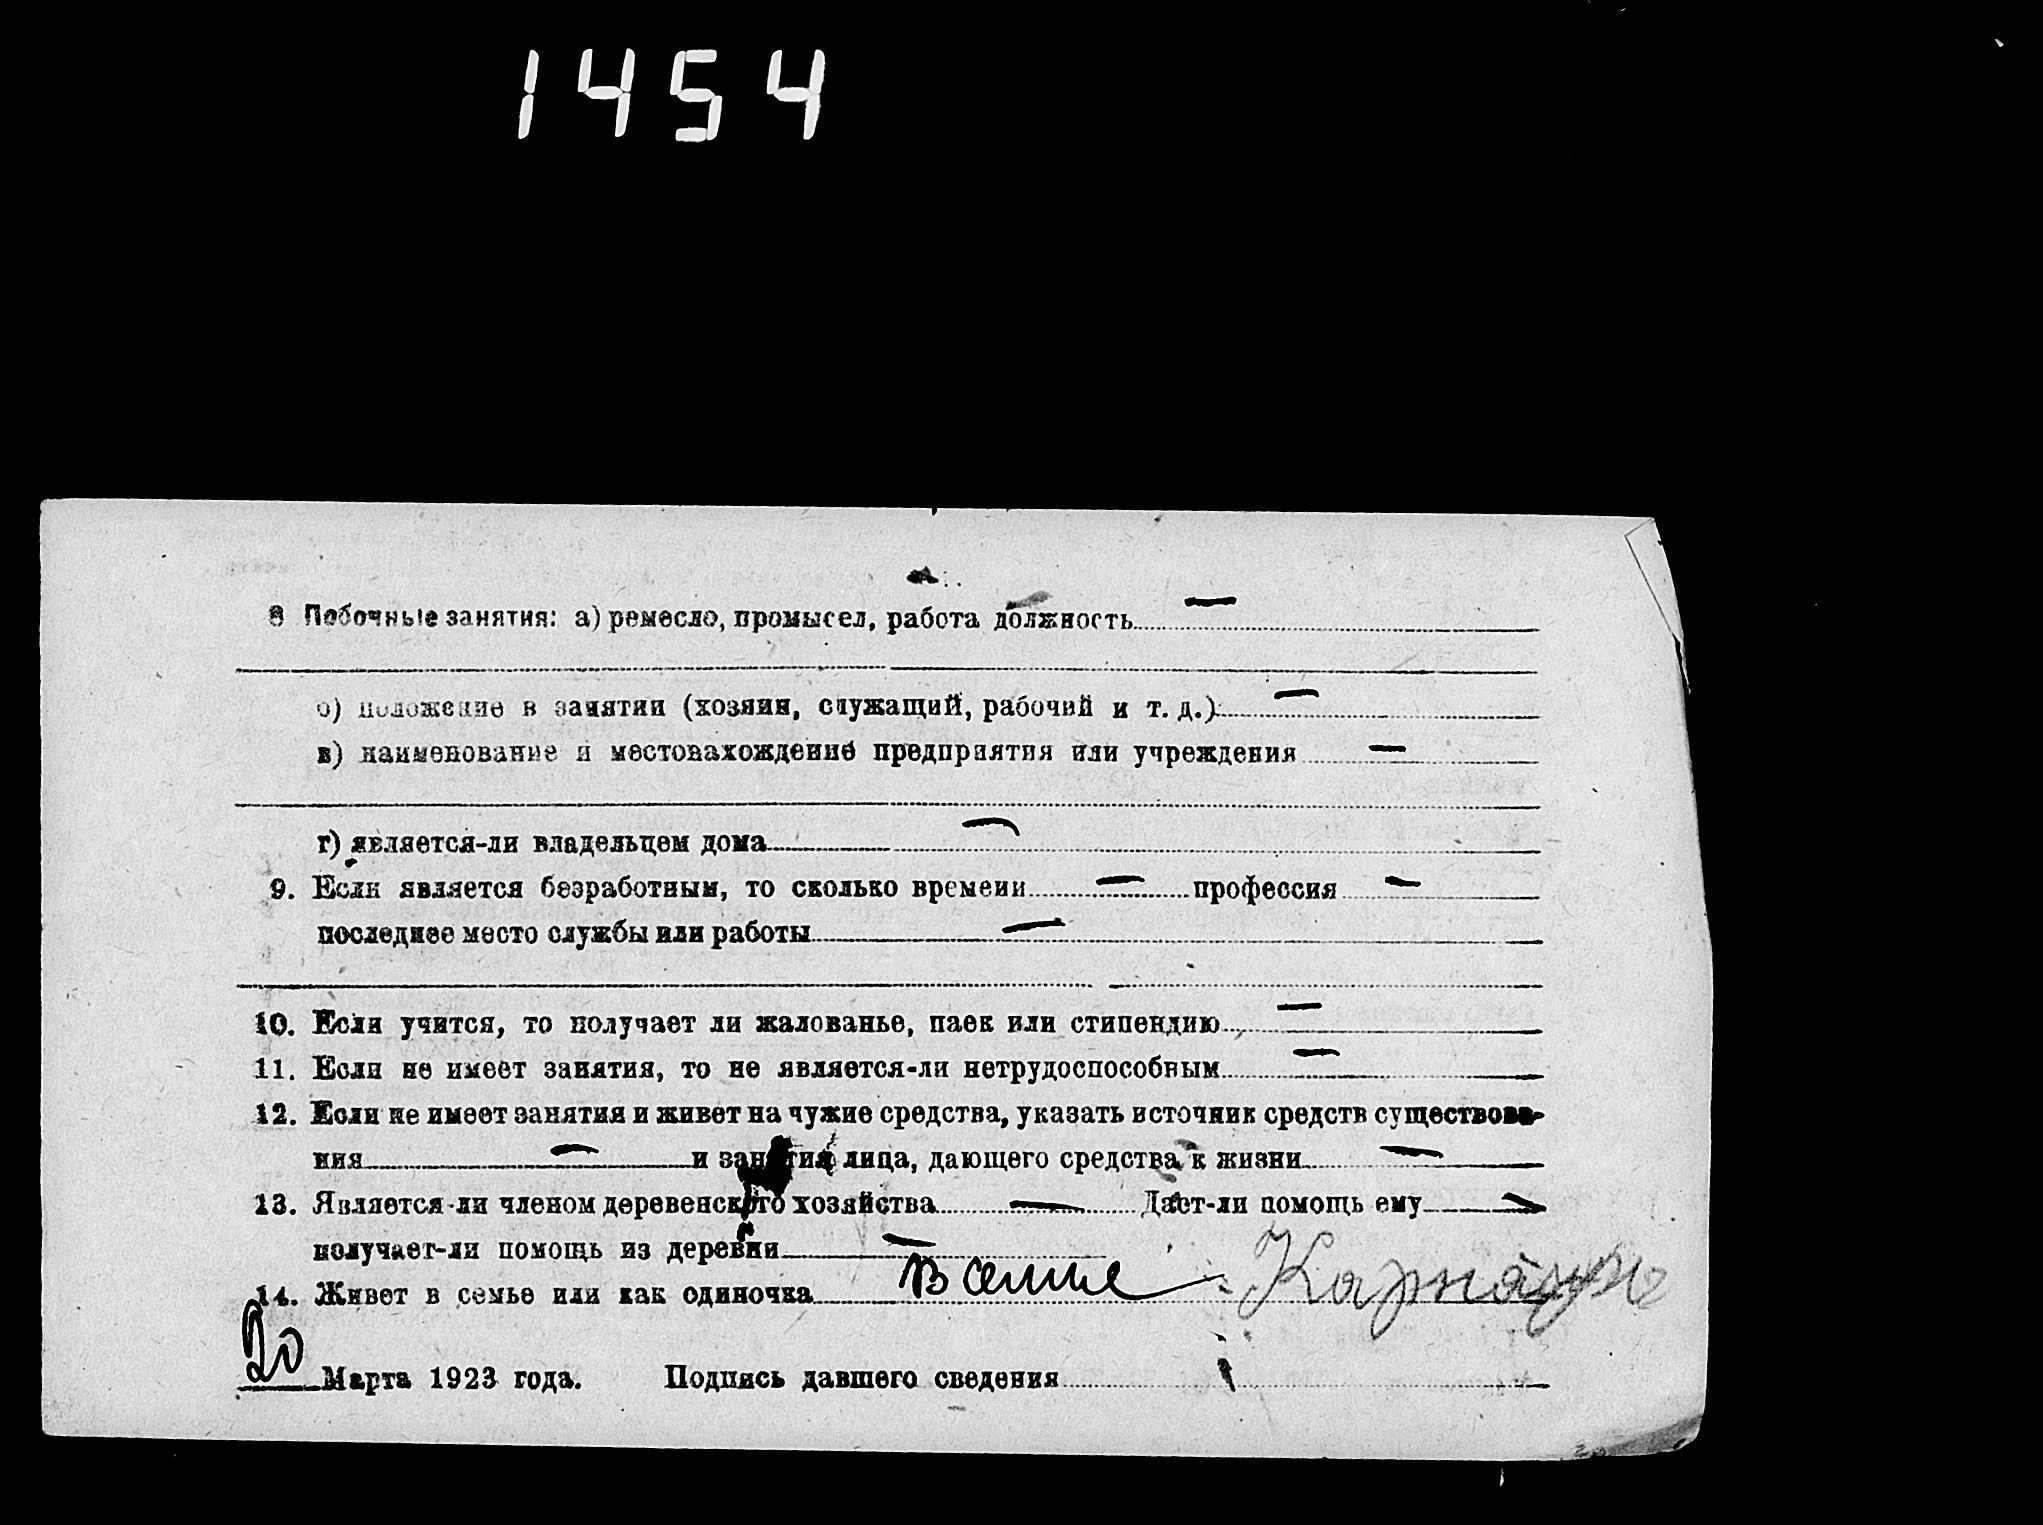 1454
8 Побочные занятия: а) ремесло, промысел, работа должность —
б) положение в занятии (хозяин, служащий, рабочий и т. д.) —
в) наименование и местонахождение предприятия или учреждения —
г) является-ли владельцем дома —
9. Если является безработным, то сколько времени — профессия —
последнее место службы или работы —
10. Если учится, то получает ли жалованье, паек или стипендию —
11. Если не имеет занятия, то не является-ли нетрудоспособным —
12. Если не имеет занятия и живет на чужие средства, указать источник средств существова-
ния — и занятия лица, дающего средства к жизни —
13. Является-ли членом деревенского хозяйства — Дает-ли помощь ему —
получает-ли помощь из деревни —
14. Живет в семье или как одиночка В семье
20 Марта 1923 года. Подпись давшего сведения